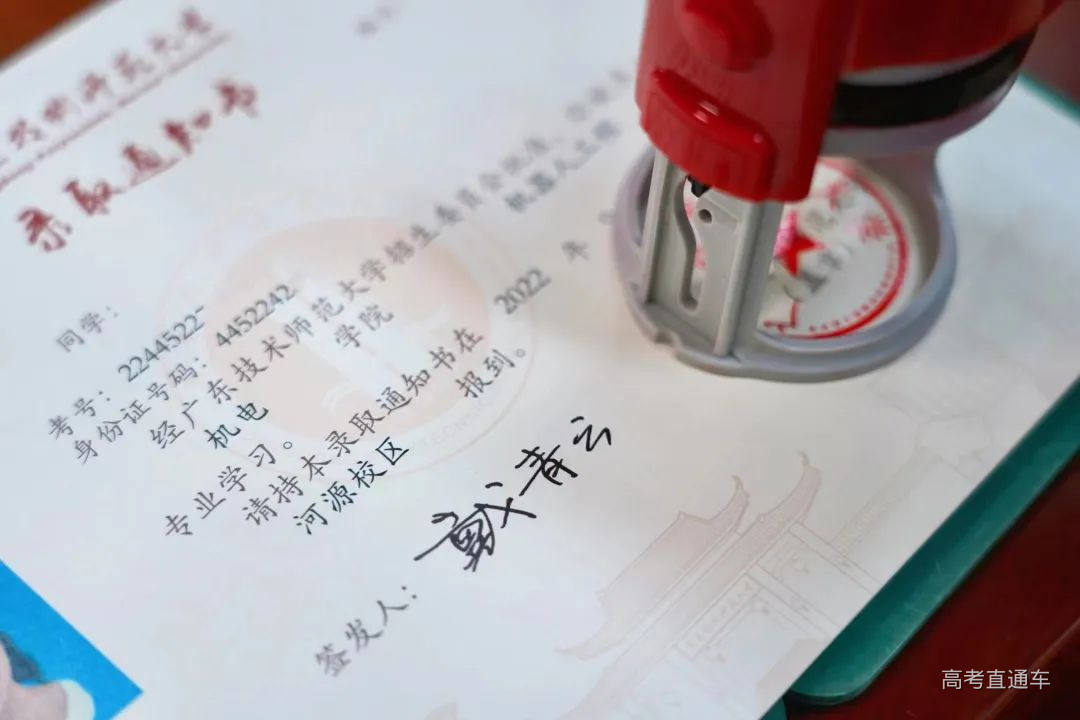 技术师范大学
录取通知书
同学：
考号：2244522-
身份证号码：4452242
经广东技术师范大学招生委员会批准，
机电 学院 机器人工程
专业学习。
请持本录取通知书在 2022 年
河源校区 报到。
签发人：戴青云
高考直通车